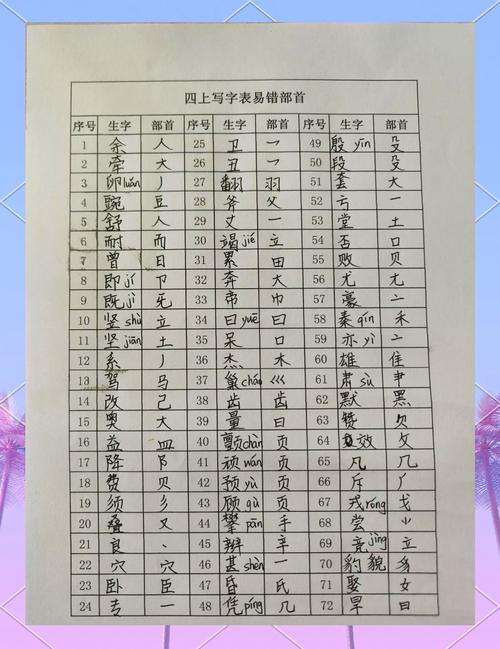 四上写字表易错部首
序号 生字 部首 序号 生字 部首 序号 生字 部首
1 余 人 25 卫 乛 49 殷 yīn 殳
2 牵 大 26 丑 乛 50 段 殳
3 卵 luǎn 丿 27 翻 羽 51 套 大
4 豌 豆 28 斧 父 52 亏 一
5 舒 人 29 丈 一 53 堂 土
6 耐 而 30 竭 jié 立 54 否 口
7 曾 日 31 累 田 55 败 贝
8 即 jí 卩 32 奔 大 56 尤 尢
9 既 jì 旡 33 帝 巾 57 豪 亠
10 竖 shù 立 34 曰 yuē 曰 58 秦 qín 禾
11 坚 jiān 土 35 呆 口 59 亦 yì 亠
12 系 丿 36 杰 木 60 雄 隹
13 驾 马 37 巢 cháo 巛 61 肃 sù 肀
14 改 己 38 齿 齿 62 默 黑
15 奥 大 39 量 曰 63 赞 欠
16 益 皿 40 颤 chàn 页 64 效 攵
17 降 阝 41 顽 wán 页 65 凡 几
18 费 贝 42 预 yù 页 66 斥 厂
19 须 彡 43 顾 gù 页 67 戎 róng 戈
20 叠 又 44 攀 pān 手 68 尝 ⺌
21 良 丶 45 辫 辛 69 竞 jìng 立
22 穴 穴 46 甚 shèn 一 70 豹 貌 豸
23 卧 臣 47 昏 氏 71 娶 女
24 专 一 48 凭 píng 几 72 旱 日